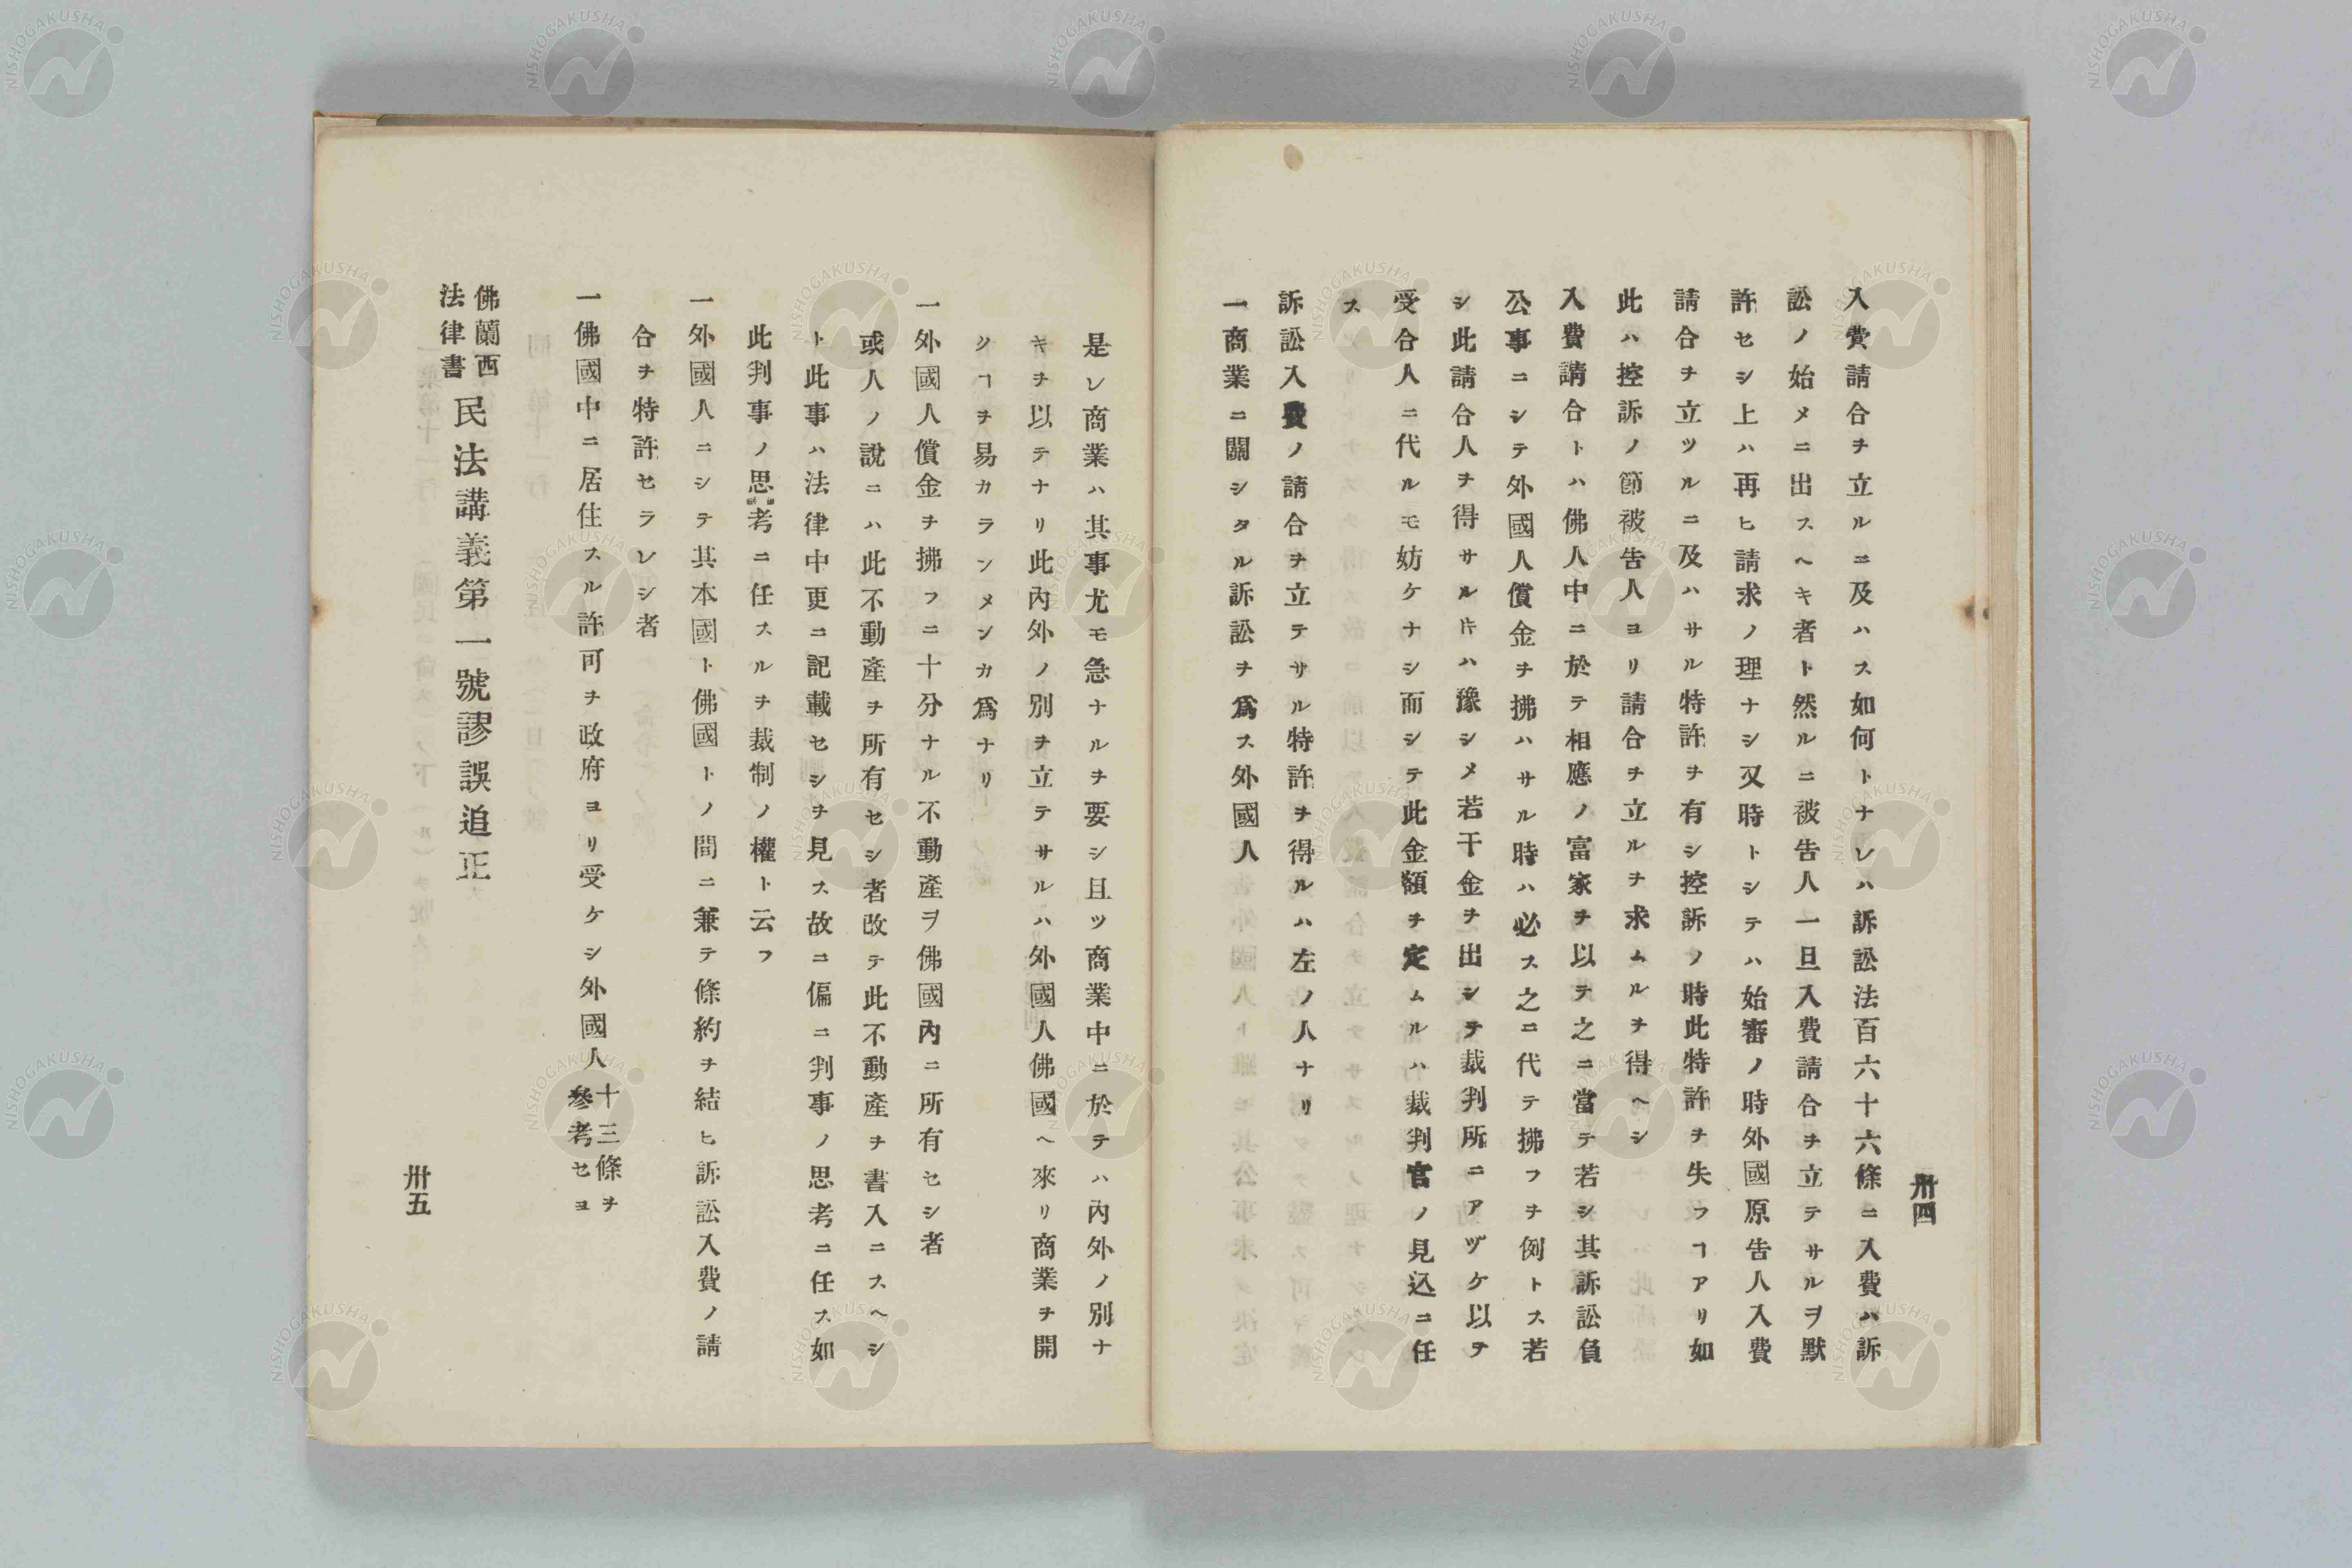 卅四
入費請合ヲ立ルニ及ハス如何トナレハ訴訟法百六十六條ニ入費ハ訴
訟ノ始メニ出スヘキ者ト然ルニ被告人一旦入費請合ヲ立テサルヲ默
許セシ上ハ再ヒ請求ノ理ナシ又時トシテハ始審ノ時外國原告人入費
請合ヲ立ツルニ及ハサル特許ヲ有シ控訴ノ時此特許ヲ失フヿアリ如
此ハ控訴ノ節被告人ヨリ請合ヲ立ルヲ求ムルヲ得ヘシ
入費請合トハ佛人中ニ於テ相應ノ富家ヲ以テ之ニ當テ若シ其訴訟負
公事ニシテ外國人償金ヲ拂ハサル時ハ必ス之ニ代テ拂フヲ例トス若
シ此請合人ヲ得サルㇳキハ豫シメ若干金ヲ出シテ裁判所ニアヅケ以テ
受合人ニ代ルモ妨ケナシ而シテ此金額ヲ定ムルハ裁判官ノ見込ニ任
ス
訴訟入費ノ請合ヲ立テサル特許ヲ得ルハ左ノ人ナリ
一商業ニ關シタル訴訟ヲ爲ス外國人
是レ商業ハ其事尤モ急ナルヲ要シ且ツ商業中ニ於テハ内外ノ別ナ
キヲ以テナリ此内外ノ別ヲ立テサルハ外國人佛國ヘ來リ商業ヲ開
クヿヲ易カランメンカ爲ナリ
一外國人償金ヲ拂フニ十分ナル不動產ヲ佛國内ニ所有セシ者
或人ノ說ニハ此不動產ヲ所有セシ者改テ此不動產ヲ書入ニスヘシ
ト此事ハ法律中更ニ記載セシヲ見ス故ニ偏ニ判事ノ思考ニ任ス如
此判事ノ思考ニ任スルヲ裁制ノ權ト云フ
一外國人ニシテ其本國ト佛國トノ間ニ兼テ條約ヲ結ヒ訴訟入費ノ請
合ヲ特許セラレシ者
一佛國中ニ居住スル許可ヲ政府ヨリ受ケシ外國人十三條ヲ參考セヨ
佛蘭西法律書民法講義第一號謬誤追正
卅五
NISHOGAKUSHA